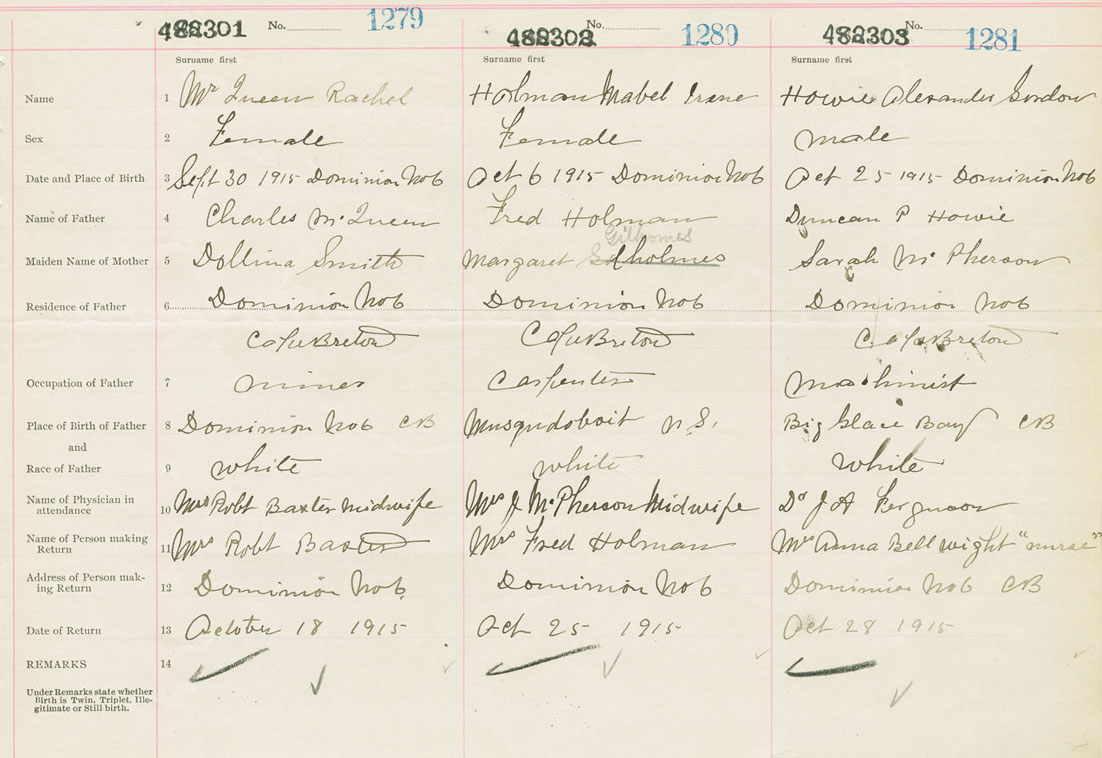 482301 No. 1279 482302 No. 1280 482303 No. 1281
Surname first Surname first Surname first
Name 1 Mc Queen Rachel Holman Mabel Irene Howie Alexander Gordon
Sex 2 Female Female male
Date and Place of Birth 3 Sept 30 1915 Dominion No 6 Oct 6 1915 Dominion No 6 Oct 25 1915 Dominion No 6
Name of Father 4 Charles Mc Queen Fred Holman Duncan P Howie
Gilhomes
Maiden Name of Mother 5 Dollina Smith Margaret Sarah Mc Pherson
Residence of Father 6 Dominion No 6 Dominion No 6 Dominion No 6
Cape Breton Cape Breton Cape Breton
Occupation of Father 7 miner Carpenter machinist
Place of Birth of Father 8 Dominion No 6 CB Musqudoboit N.S. Big Glace Bay CB
and
Race of Father 9 white white white
Name of Physician in
attendance 10 Mrs Robt Baxter midwife Mrs J McPherson Midwife Dr J A Ferguson
Name of Person making
Return 11 Mrs Robt Baxter Mrs Fred Holman Mrs Anna Bell wight "nurse"
Address of Person mak-
ing Return 12 Dominion No 6 Dominion No 6 Dominion No 6 CB
Date of Return 13 October 18 1915 Oct 25 1915 Oct 28 1915
REMARKS 14
Under Remarks state whether
Birth is Twin, Triplet, Ille-
gitimate or Still birth.